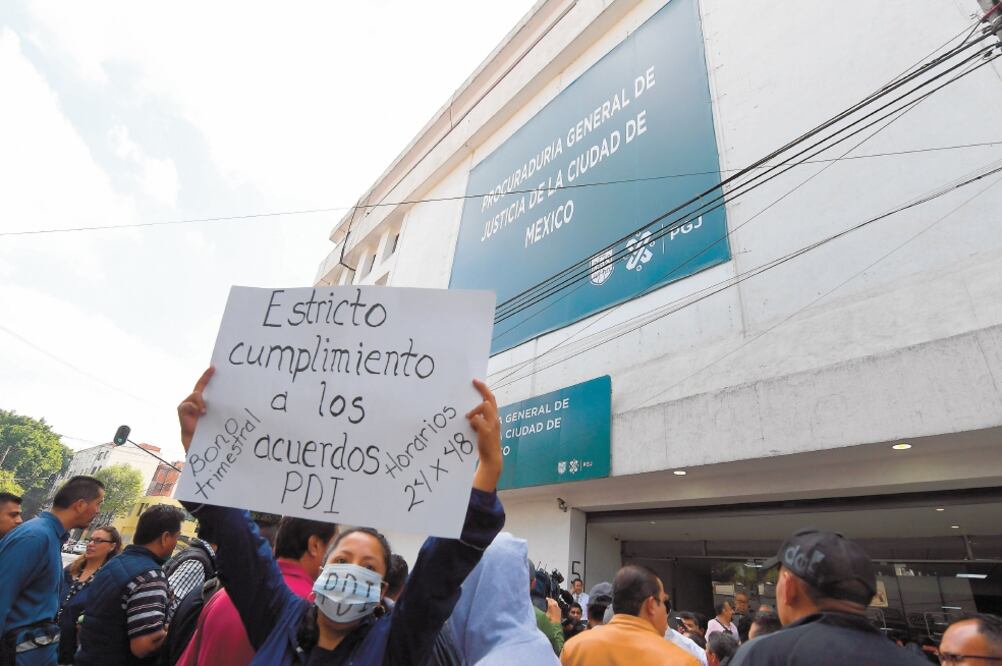 PROCURADURÍA GENERAL DE
JUSTICIA DE LA CIUDAD DE
MÉXICO
PGJ
Estricto
cumplimiento
a los
acuerdos
PDI
Bono
trimestral
Horarios
24 x 48
GENERAL DE
CIUDAD DE
PDI